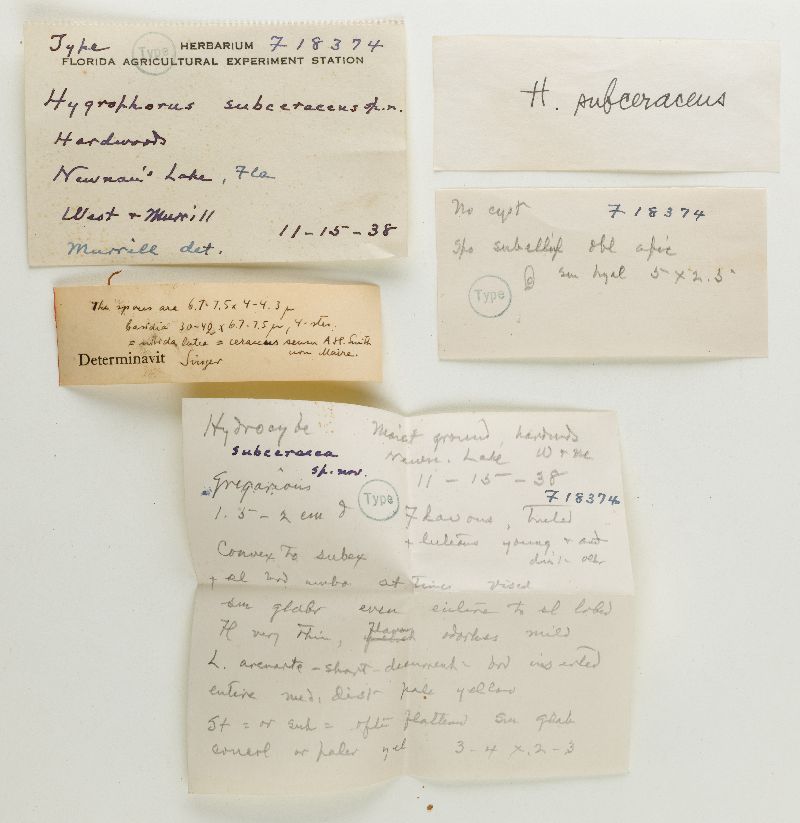 Type Type HERBARIUM F 18374
FLORIDA AGRICULTURAL EXPERIMENT STATION
Hygrophorus subceraceus sp. n.
Hardwoods
Newnan's Lake, Fla
West + Murrill
11-15-38
Murrill det.
H. subceraceus
No cyst F 18374
Spo subellip obl apic
sm hyal 5 x 2.5
Type
The spores are 6.7-7.5 x 4-4.3 µ
basidia 30-42 x 6.7-7.5 µ, 4-ster.
= nitida lutea = ceraceus sensu A.H. Smith
non Maire.
Determinavit Singer
Hydrocybe Moist ground, hardwds
subceracea Newn. Lake W + M
sp. nov. 11-15-38
Gregarious Type F 18374
1.5-2 cm Flavous,
+ luteous young +
Convex to subex
+ sl brd umbo at times viscid
sm glabr even entire to sl lobed
H very thin, odorless mild
L. arcuate-short-decurrent brd inserted
entire med. dist pale yellow
St = or sub = often flattend sm glab
concol or paler yel 3-4 x .2-.3